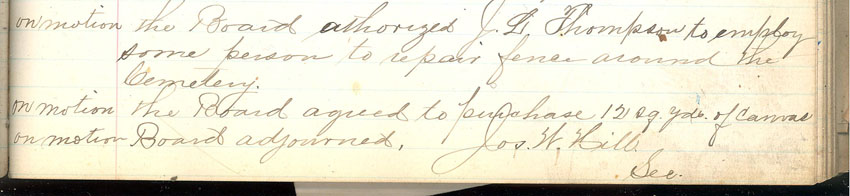 on motion the Board athorized J. L. Thompson to employ
some person to repair fence around the
Cemetery.
on motion the Board agreed to purchase 12 sq. yds. of canvas
on motion Board adjourned. Jos. W. Hill
Sec.